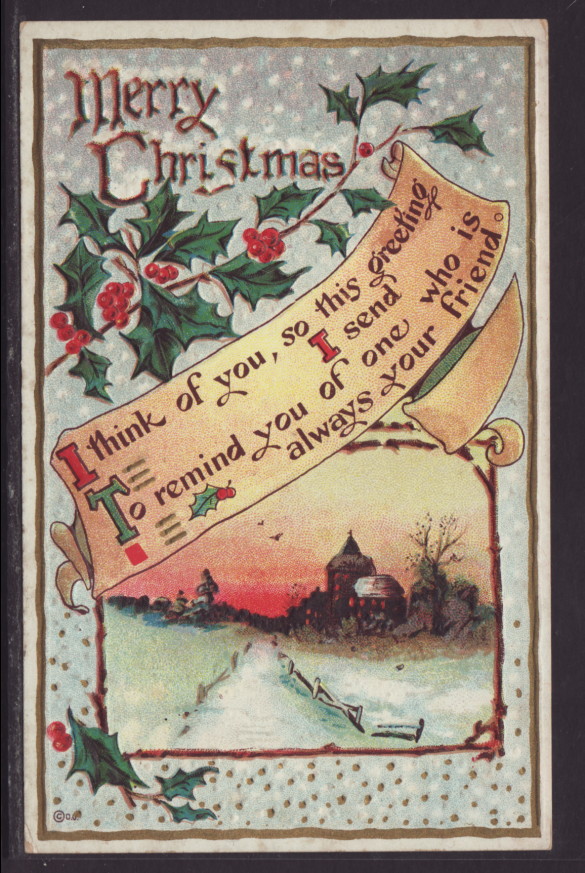 Merry
Christmas
I think of you, so this greeting
I send
To remind you of one who is
always your friend.